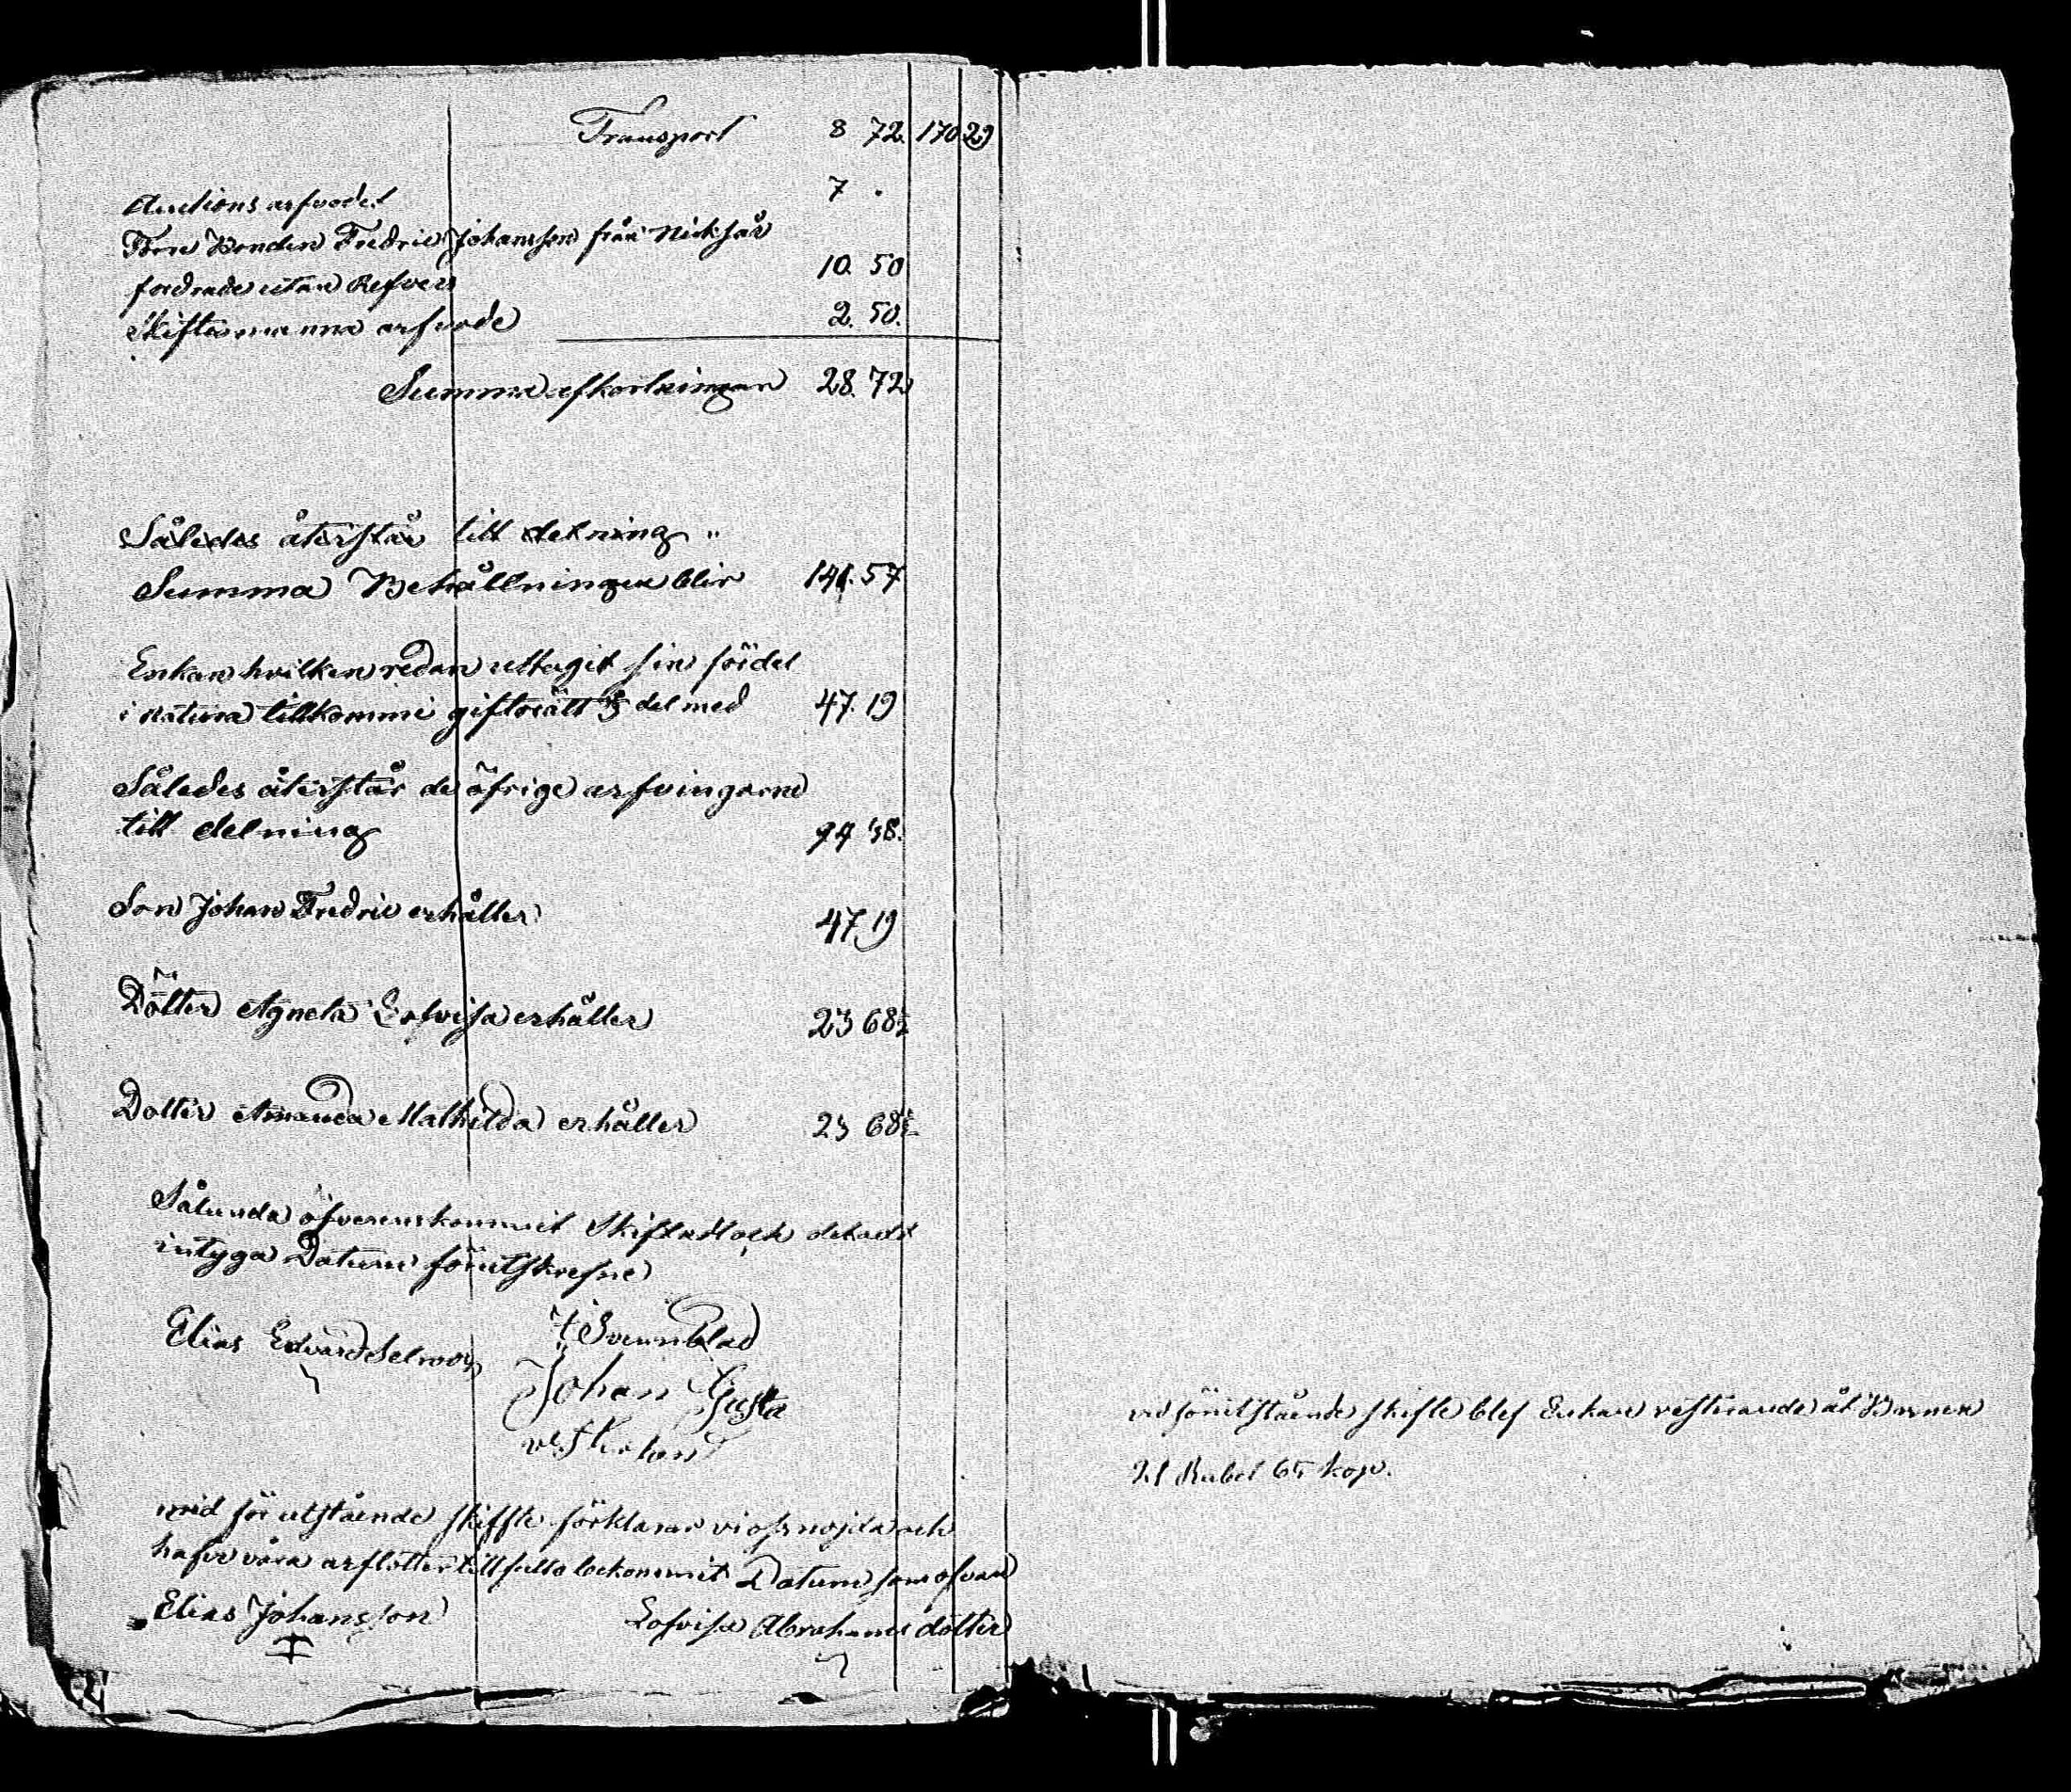 Transport 8 72. 170 29
Auctions arfvodet 7 .
Förre Bonden Fredric Johansson från Nicksår
fordrade utan Refvers 10. 50
Skiftesmanna arfvode 2. 50.
Summa afkortningen 28. 72
Således återstår till delning "
Summa Behållningen blir 141. 57
Enkan hvilken redan uttagit sin fördel
i natura tillkommi giftorätt ⅓ del med 47. 19
Således återstår de öfrige arfvingarne
till delning 94 38.
Son Johan Fredric erhåller 47 19
Dötter Agneta Lofvisa erhåller 23 68½
Dotter Amanda Mathilda erhåller 23 68½
Sålunda öfverenskommit Skiftadt och deladt
intyga Datum förutskrefne
Elias Edvard Selroos
Johan Gusta
vesterlund
med förutstående skiffte förklarar vi oss nöjda och
hafve våra arflotter till fullo bekommit Datum som ofvan
Elias Johansson Lofvisa Abrahams dotter
vid förutstående skifte blef Enkan resterande åt Barnen
21 Rubel 65 kop.